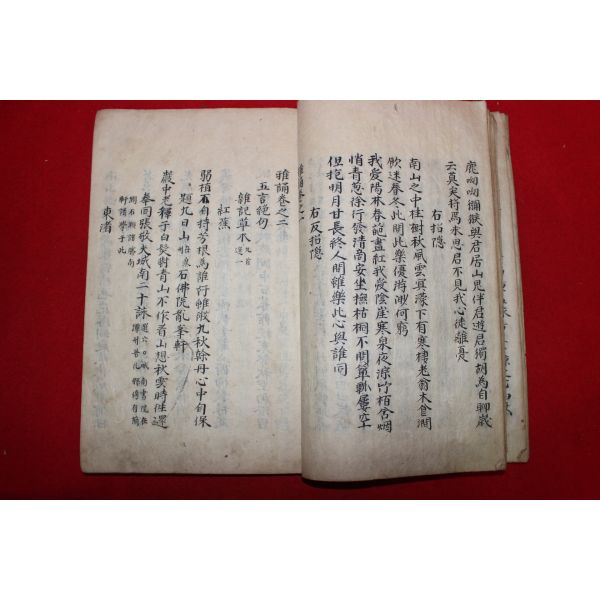 鹿呦呦獼猴與君居山鬼伴君遊君獨胡爲自聊歲
云莫矣將焉求思君不見我心徒離憂
右招隱
南山之中桂樹秋風雲冥濛下有寒棲老翁木食澗
飲迷春冬此間此樂優游渺何窮
我愛陽林春葩晝紅我愛陰崖寒泉夜淙竹栢含烟
悄青葱徐行發清商安坐撫枯桐不問簞瓢屢空
但抱明月甘長終人間雖樂此心與誰同
右反招隱
雅誦卷之二
五言絶句
雜記草木 九首 選一
紅蕉
弱植不自持芳根爲誰好雖微九秋榦丹心中自保
題九日山石佛院亂峯軒
巖中老釋子白髮對青山不作看山想秋雲時往還
奉同張敬夫城南二十詠 選六○城南書院在
東渚